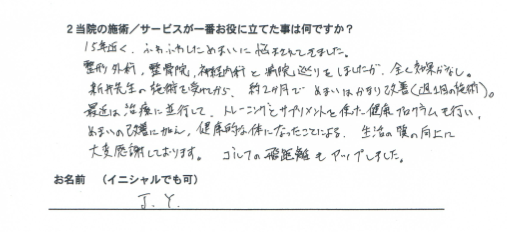 2 当院の施術／サービスが一番お役に立てた事は何ですか？
15年近く、ふわふわしためまいに悩まされてきました。
整形外科、整骨院、神経内科と病院巡りをしましたが、全く効果がなし。
新井先生の施術を受けてから、約2か月でめまいはかなり改善（週1回の施術）。
最近は治療に並行して、トレーニングとサプリメントを使った健康プログラムを行い、
めまいの改善に加え、健康的な体になったことによる、生活の質の向上に
大変感謝しております。 ゴルフの飛距離もアップしました。
お名前 （イニシャルでも可）
J. Y.